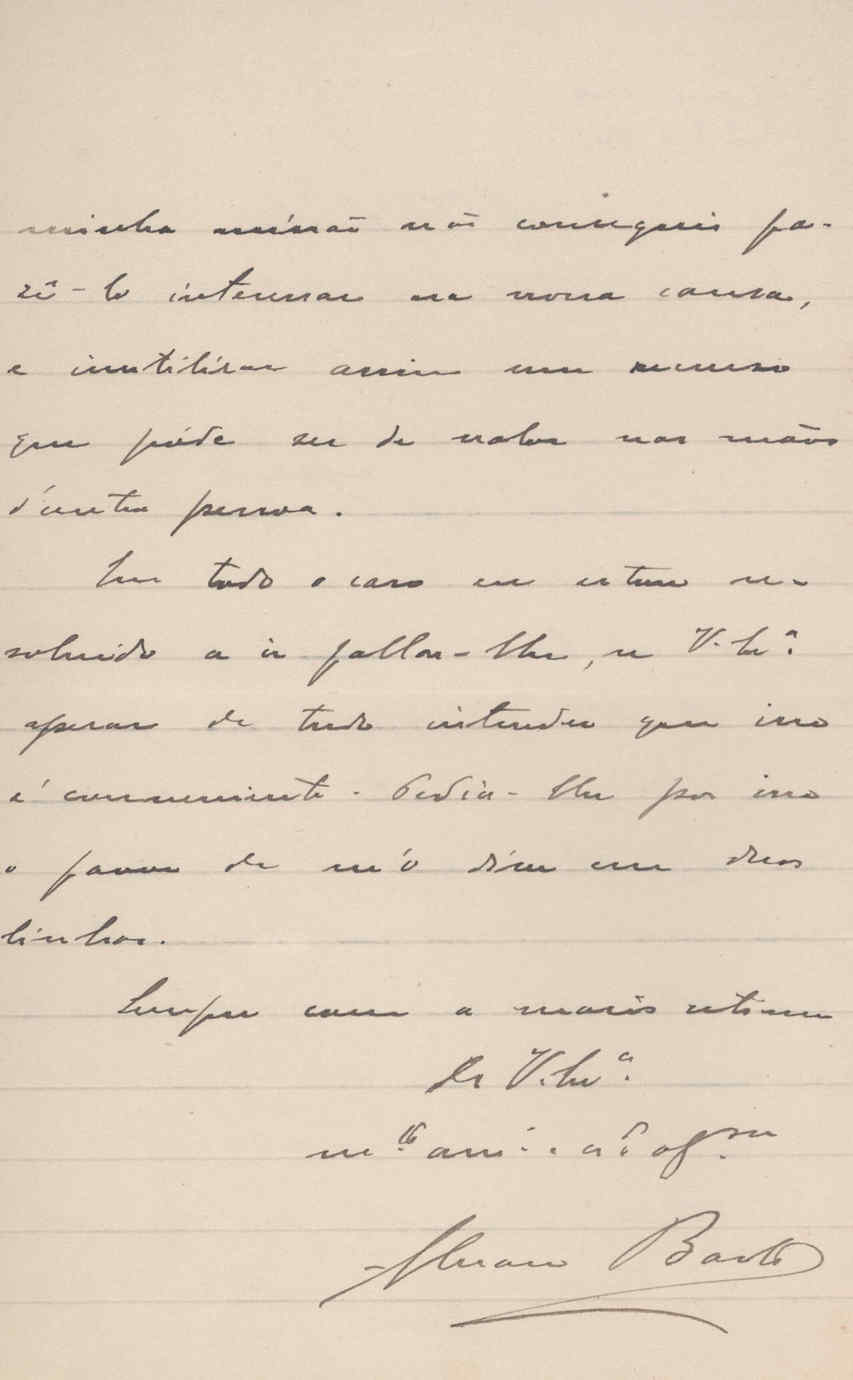 minha missão não conseguir fa-
zê-lo interessar na nossa causa,
e inutilisar assim um recurso
que póde ser de valor nas mãos
d'outra pessoa.
Em tudo o caso eu estou re-
solvido a ir fallar-lhe, se V. Ex.ª
apesar de tudo intender que isso
é conveniente. Pedia-lhe por isso
o favor de m'o dizer em duas
linhas.
Sempre com a maior estima
De V. Ex.ª
m.to am.º e cr.º obg.mo
Alvaro